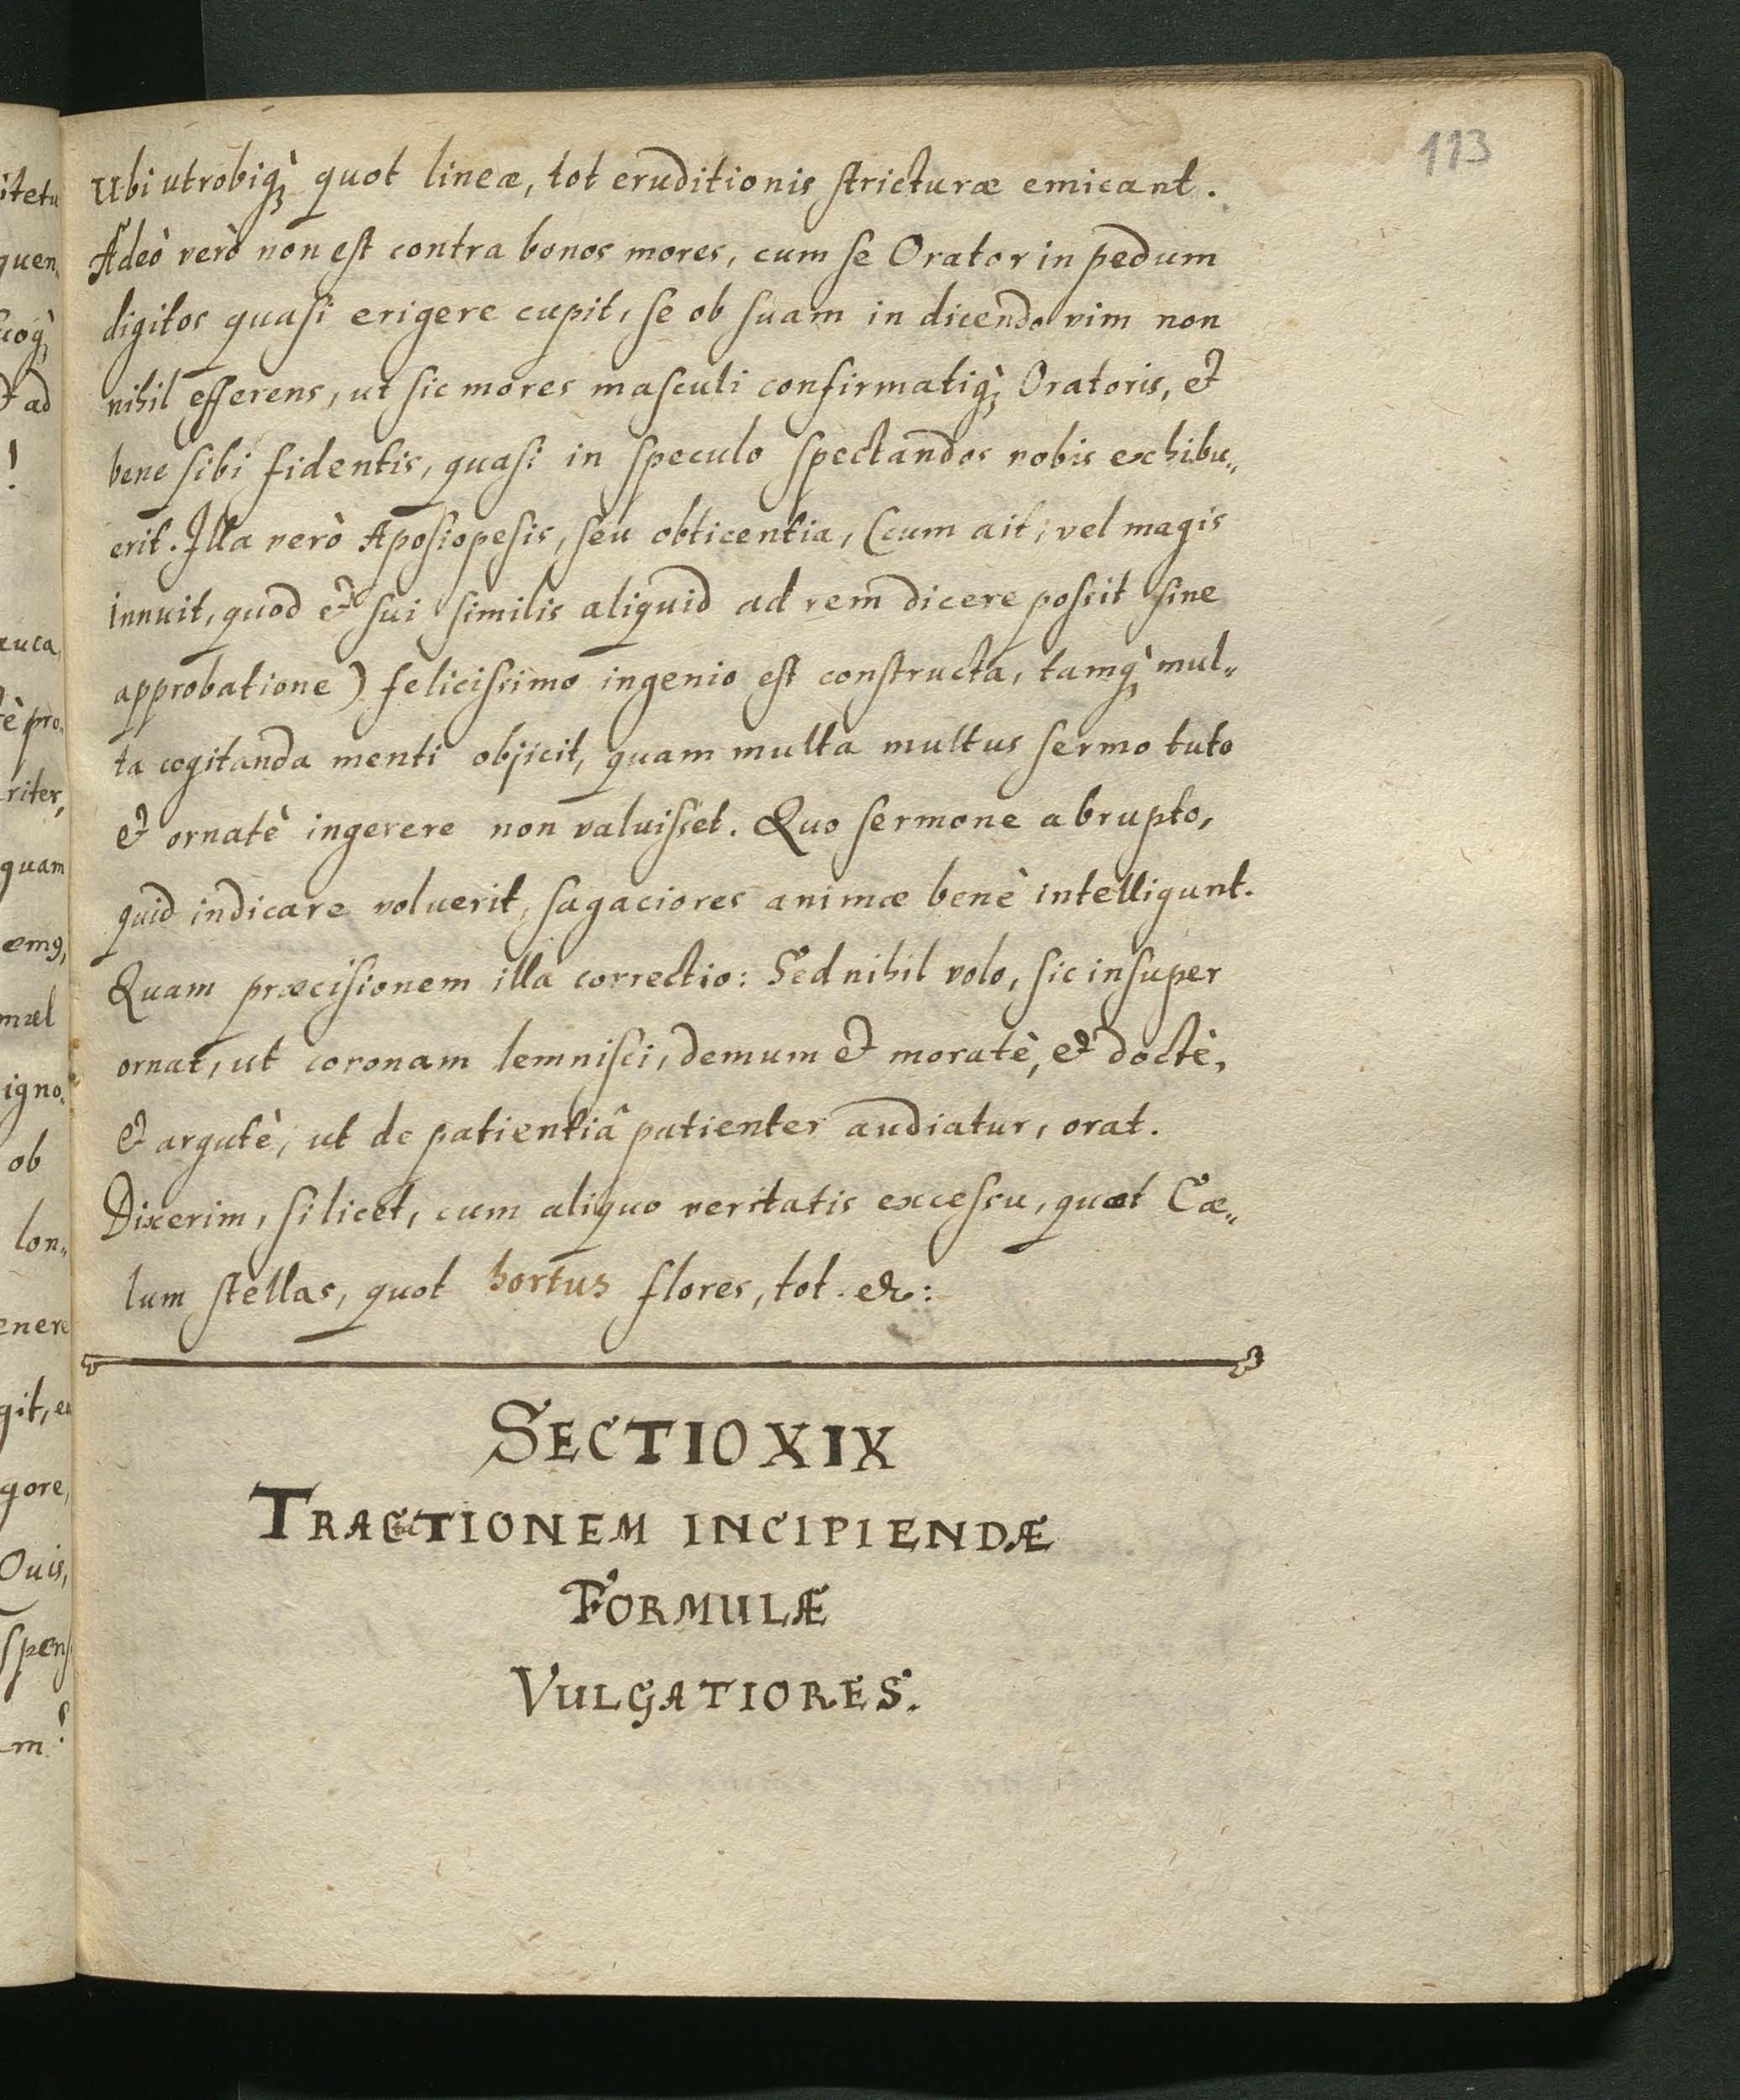 113
Ubi utrobiq; quot lineæ, tot eruditionis stricturæ emicant.
Adeò verò non est contra bonos mores, cum se Orator in pedum
digitos quasi erigere cupit, se ob suam in dicendo vim non
nihil efferens, ut sic mores masculi confirmatiq; Oratoris, et
bene sibi fidentis, quasi in speculo spectandos vobis exhibu„
erit. Illa verò Aposiopesis, seu obticentia, (cum ait, vel magis
innuit, quod et sui similis aliquid ad rem dicere possit sine
approbatione) felicissimo ingenio est constructa, tamq; mul„
ta cogitanda menti objicit, quam multa multus sermo tuto
et ornatè ingerere non valuisset. Quo sermone abrupto,
quid indicare voluerit, sagaciores animæ benè intelligunt.
Quam præcisionem illa correctio: Sed nihil volo, sic insuper
ornat, ut coronam lemnisci, demum et moratè, et doctè,
et argutè, ut de patientiâ patienter audiatur, orat.
Dixerim, si licet, cum aliquo veritatis excessu, quot Cæ„
lum stellas, quot hortus flores, tot. &c:
SECTIO XIX
TRACTIONEM INCIPIENDÆ
FORMULÆ
VULGATIORES.